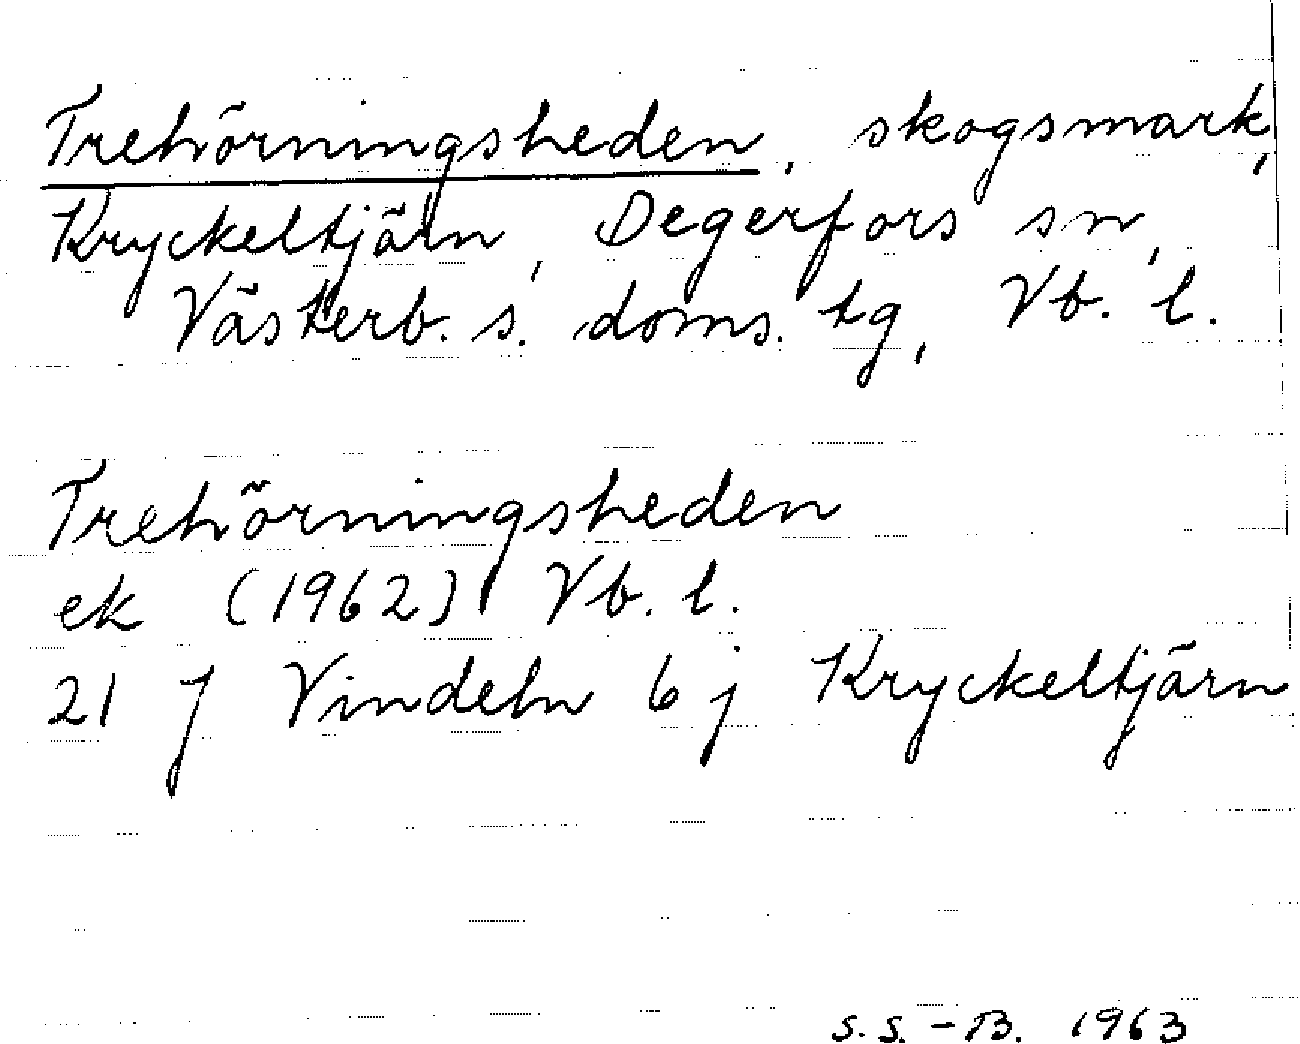 Trehörningsheden, skogsmark,
Kryckeltjärn, Degerfors sn,
Västerb. s. doms. tg, Vb. l.
Trehörningsheden
ek (1962) Vb. l.
21 J Vindeln 6 j Kryckeltjärn
S.S.-B. 1963